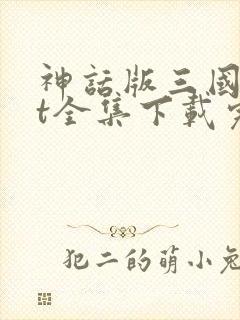 神話版三國
t全集下載
犯二的萌小兔